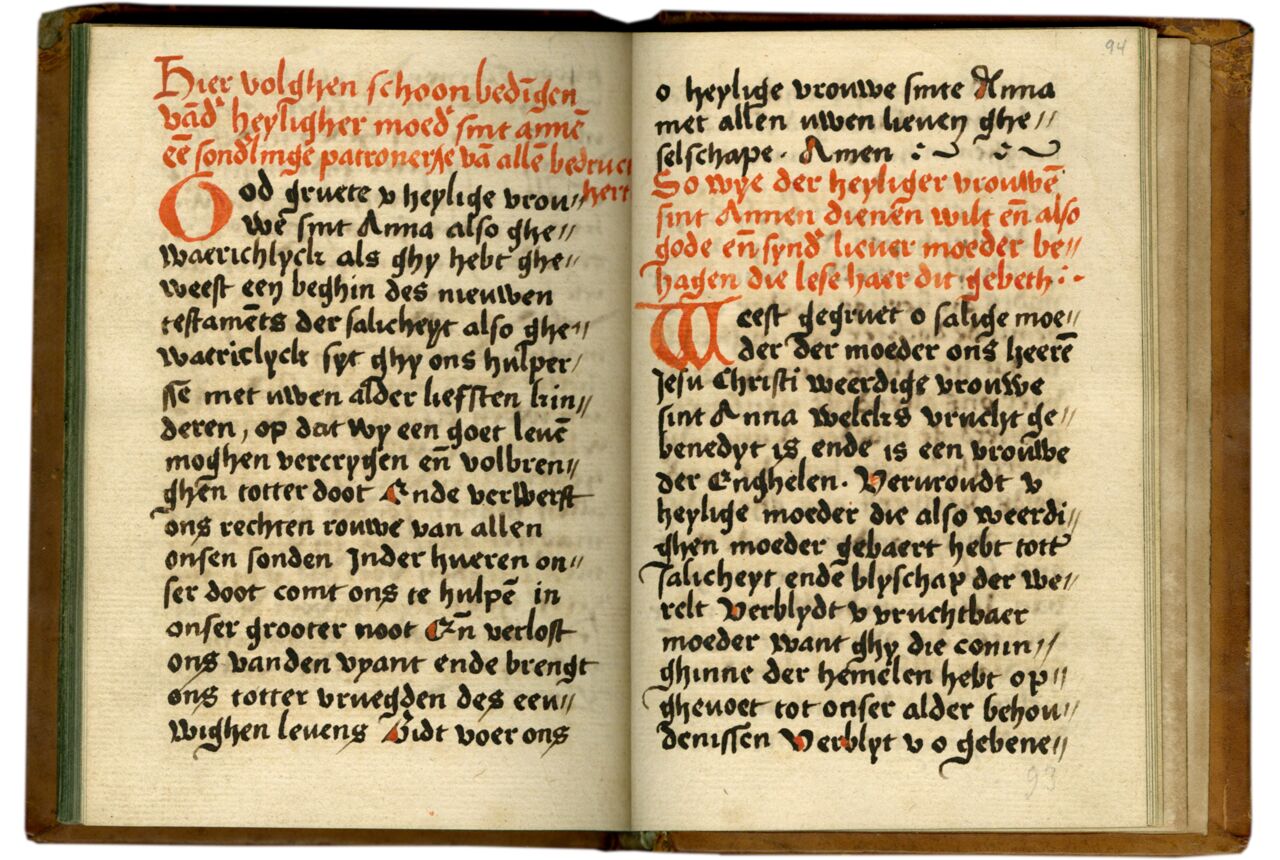 Hier volghen schoon bedīgen
vād' heyligher moed' sint annē
ēē sond'linge patronersse vā allē bedruct
hert
God gruete v heylige vrou//
we sint Anna also ghe//
waerichlyck als ghy hebt ghe//
weest een beghin des nieuwen
testamēts der salicheyt also ghe//
waericlyck syt ghy ons hulper/
sse met uwen alder liefsten kin//
deren, op dat wy een goet levē
moghen vercrygen eñ volbren//
ghen totter doot Ende verwerft
ons rechten rouwe van allen
onsen sonden Inder hueren on//
ser doot comt ons te hulpē in
onser grooter noot Eñ verlost
ons vanden vyant ende brengt
ons totter vruegden des eeu//
wighen levens Bidt voer ons
94
o heylige vrouwe sinte Anna
met allen uwen lieven ghe//
selschape. Amen
So wye der heyliger vrouwē
sint Annen dienen wilt eñ also
gode eñ synd' liever moeder be//
hagen die lese haer dit gebeth:
Weest gegruet o salige moe//
der der moeder ons heerē
Jesu Christi weerdige vrouwe
sint Anna welcks vrucht ge//
benedyt is ende is een vrouwe
der Enghelen. Vervroudt v
heylige moeder die also weerdi//
ghen moeder gebaert hebt tott
salicheyt ende blyschap der we//
relt Verblydt v vruchtbaer
moeder want ghy die conin//
ghinne der hemelen hebt op//
ghevoet tot onser alder behou//
denissen Verblyt v o gebene//
93